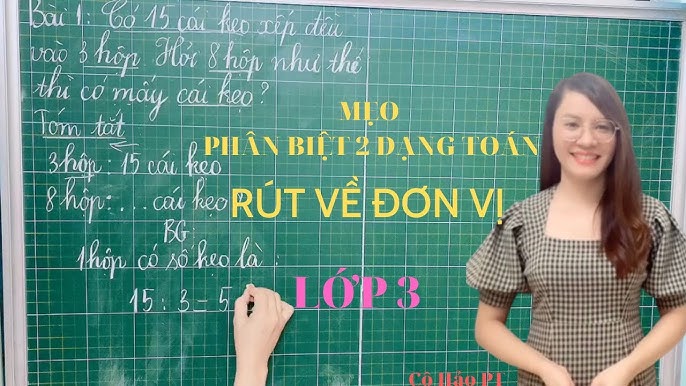 Bài 1: Có 15 cái kẹo xếp đều
vào 3 hộp. Hỏi 8 hộp như thế
thì có mấy cái kẹo?
Tóm tắt
3 hộp: 15 cái kẹo
8 hộp: ... cái kẹo
BG:
1 hộp có số kẹo là:
15 : 3 = 5
MẸO
PHÂN BIỆT 2 DẠNG TOÁN
RÚT VỀ ĐƠN VỊ
LỚP 3
Cô Hảo P1